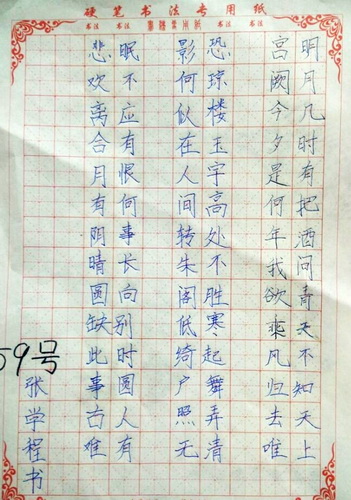 硬笔书法专用纸
书法 书法 书法 书法
明月几时有把酒问青天不知天上
宫阙今夕是何年我欲乘风归去唯
恐琼楼玉宇高处不胜寒起舞弄清
影何似在人间转朱阁低绮户照无
眠不应有恨何事长向别时圆人有
悲欢离合月有阴晴圆缺此事古难
59号
张学程书